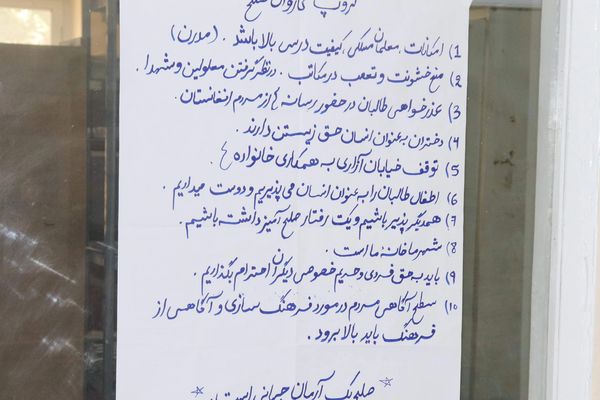 گروپ کاروان صلح
1) امکانات، معلمان مسلکی، کیفیت درسی بالا باشد. (مدرن)
2) منع خشونت و تعصب در مکاتب. در نظر گرفتن معلولین و شهدا.
3) عذرخواهی طالبان در حضور رسانه ها از مردم افغانستان.
4) دختران به عنوان انسان حق زیستن دارند.
5) توقف خیابان آزاری به همکاری خانواده ها
6) اطفال طالبان را به عنوان انسان می پذیریم و دوست میداریم.
7) همدیگر پذیر باشیم و یک رفتار صلح آمیز داشته باشیم.
8) شهر ما خانه ما است.
9) باید به حق فردی و حریم خصوصی دیگران احترام بگذاریم.
10) سطح آگاهی مردم در مورد فرهنگ سازی و آگاهی از
فرهنگ باید بالا برود.
صلح یک آرمان جهانی است